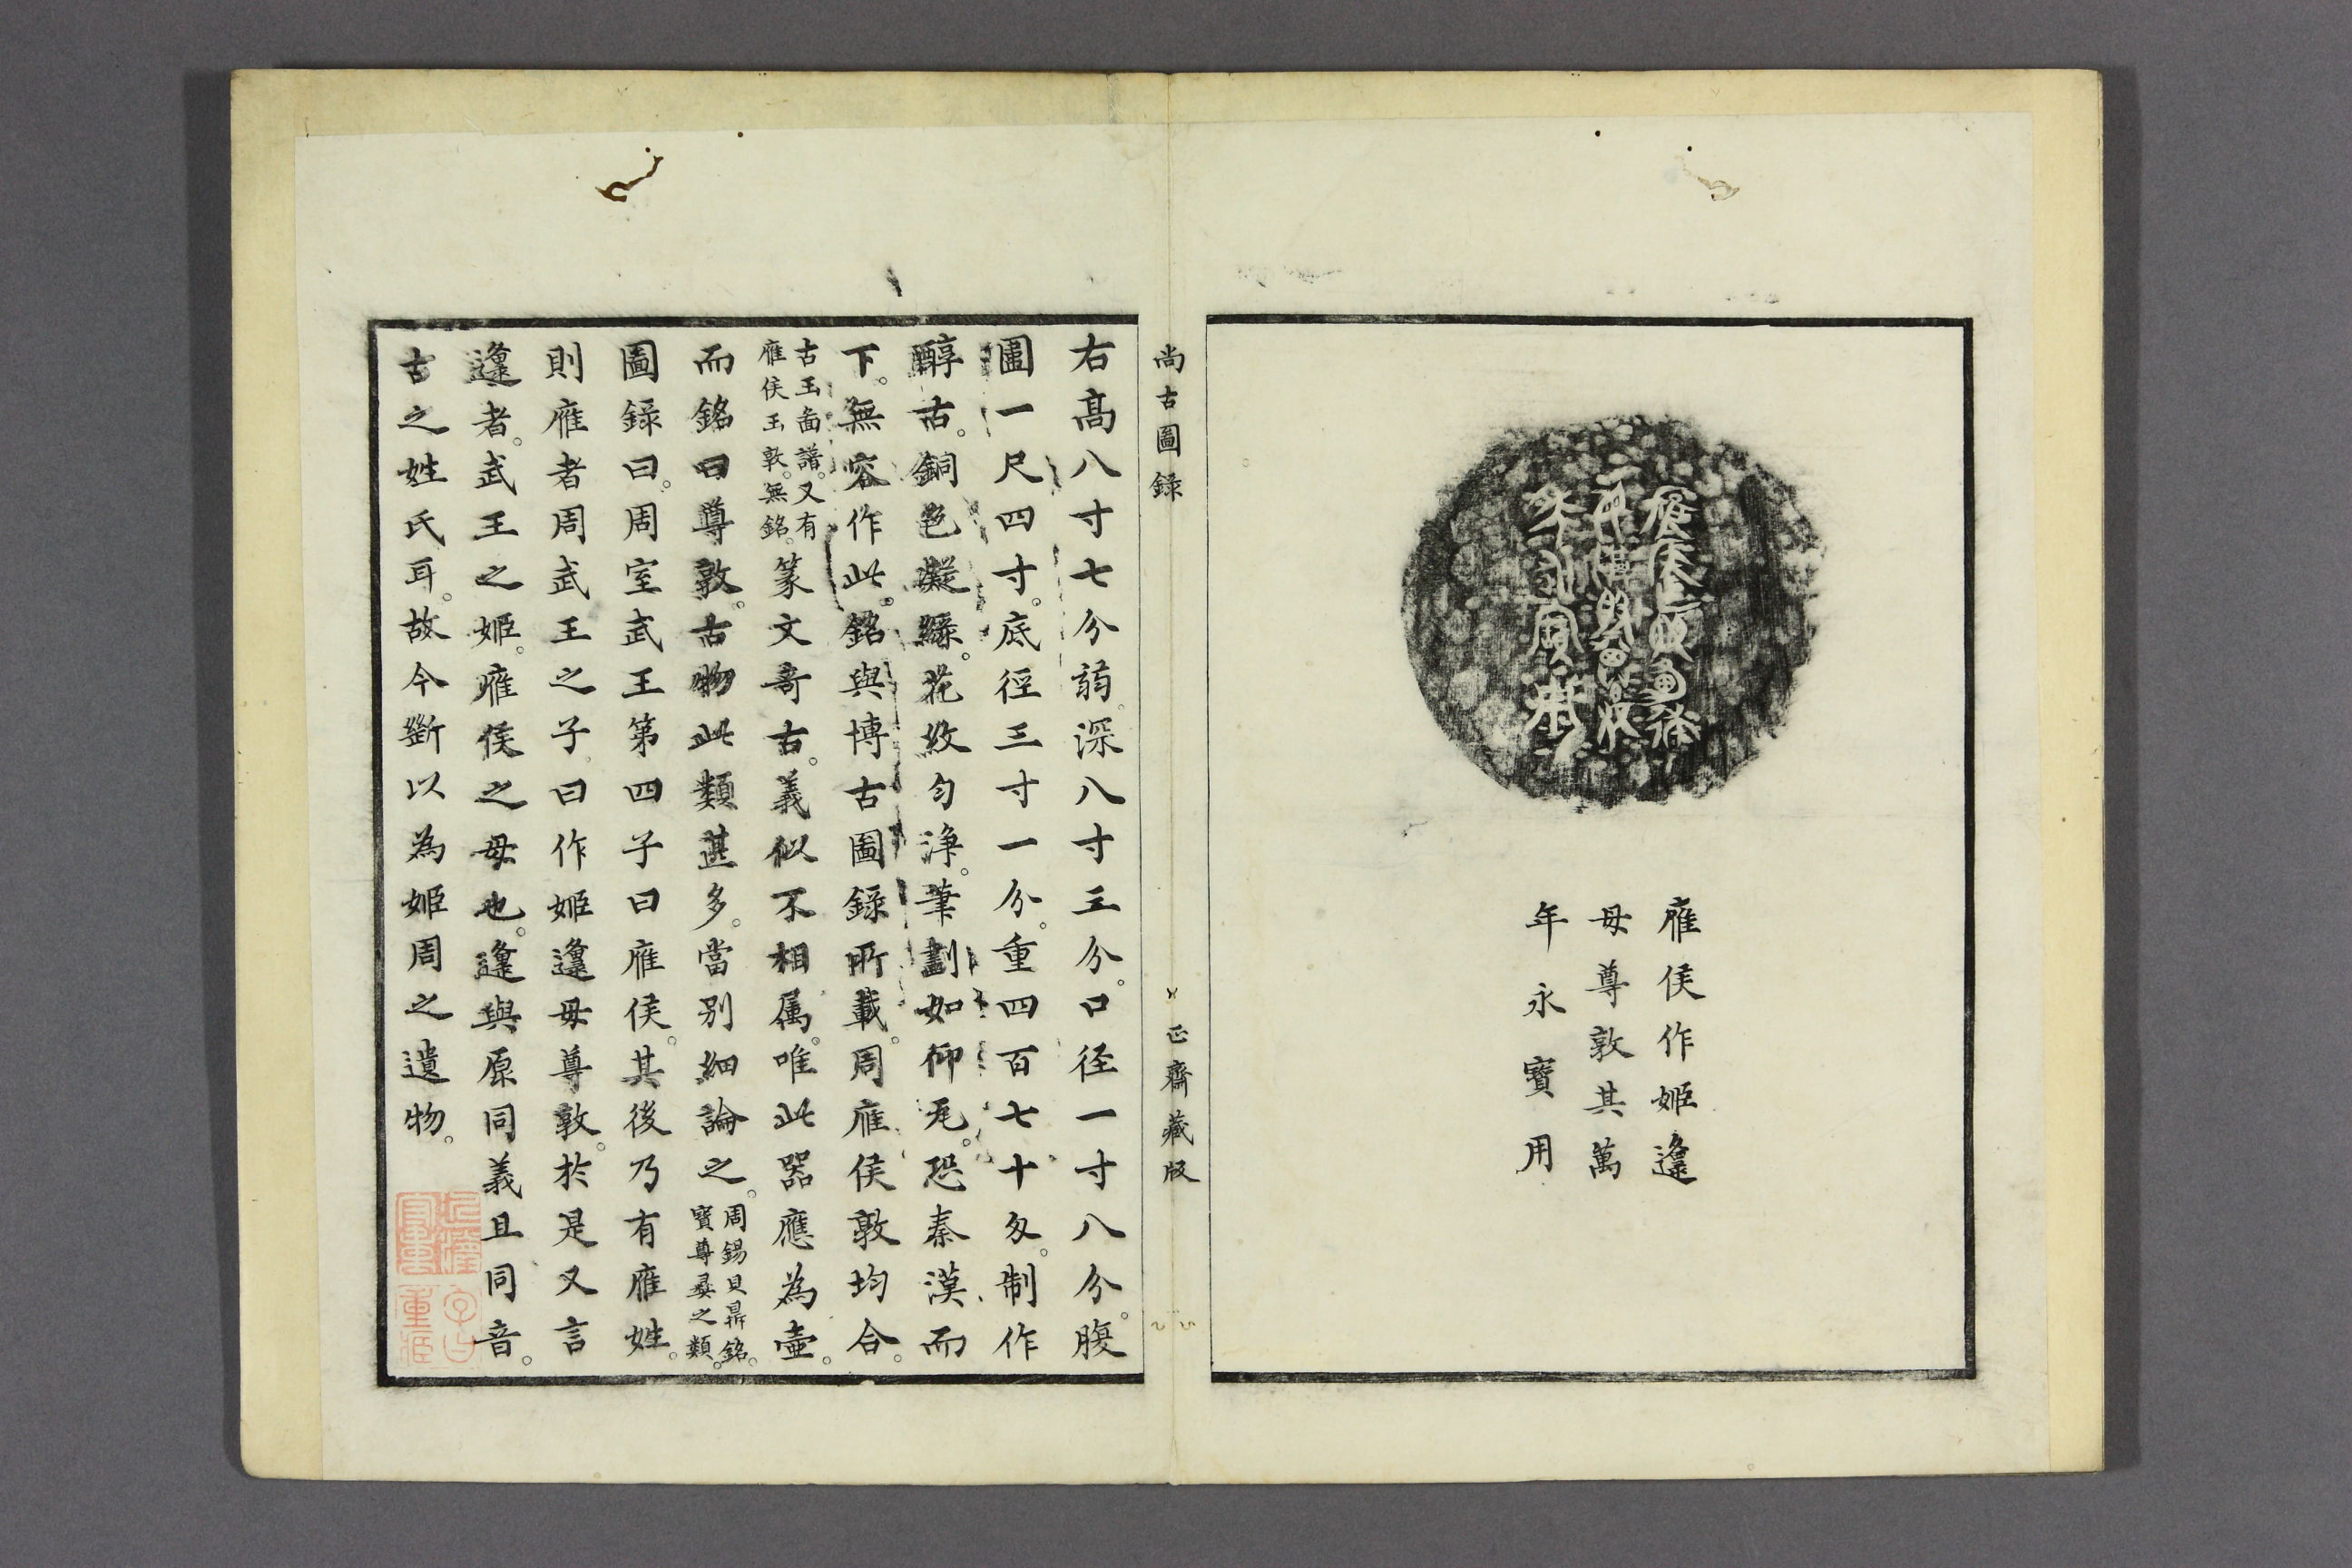 雁侯作姬邍
母尊敦其萬
年永寶用
尚古圖錄
正齋藏版
右髙八寸七分弱深八寸三分。口径一寸八分。腹
圍一尺四寸。底徑三寸一分。重四百七十匁。制作
醇古。銅色凝綠。花紋匀淨。筆劃如仰瓦。恐秦漢而
下。無容作此。銘與博古圖錄所載。周雁侯敦均合。
古玉圖譜。又有
雁侯玉敦。無銘。
篆文奇古。義似不相属。唯此器應為壷。
而銘曰尊敦。古物此類甚多。當別細論之。
周錫貝鼎銘。
寶尊彞之類。
圖錄曰。周室武王第四子曰雁侯。其後乃有雁姓。
則雁者周武王之子。曰作姬邍母尊敦。於是又言
邍者。武王之姬。雁侯之母也。邍與原同義且同音。
古之姓氏耳。故今斷以為姬周之遺物。